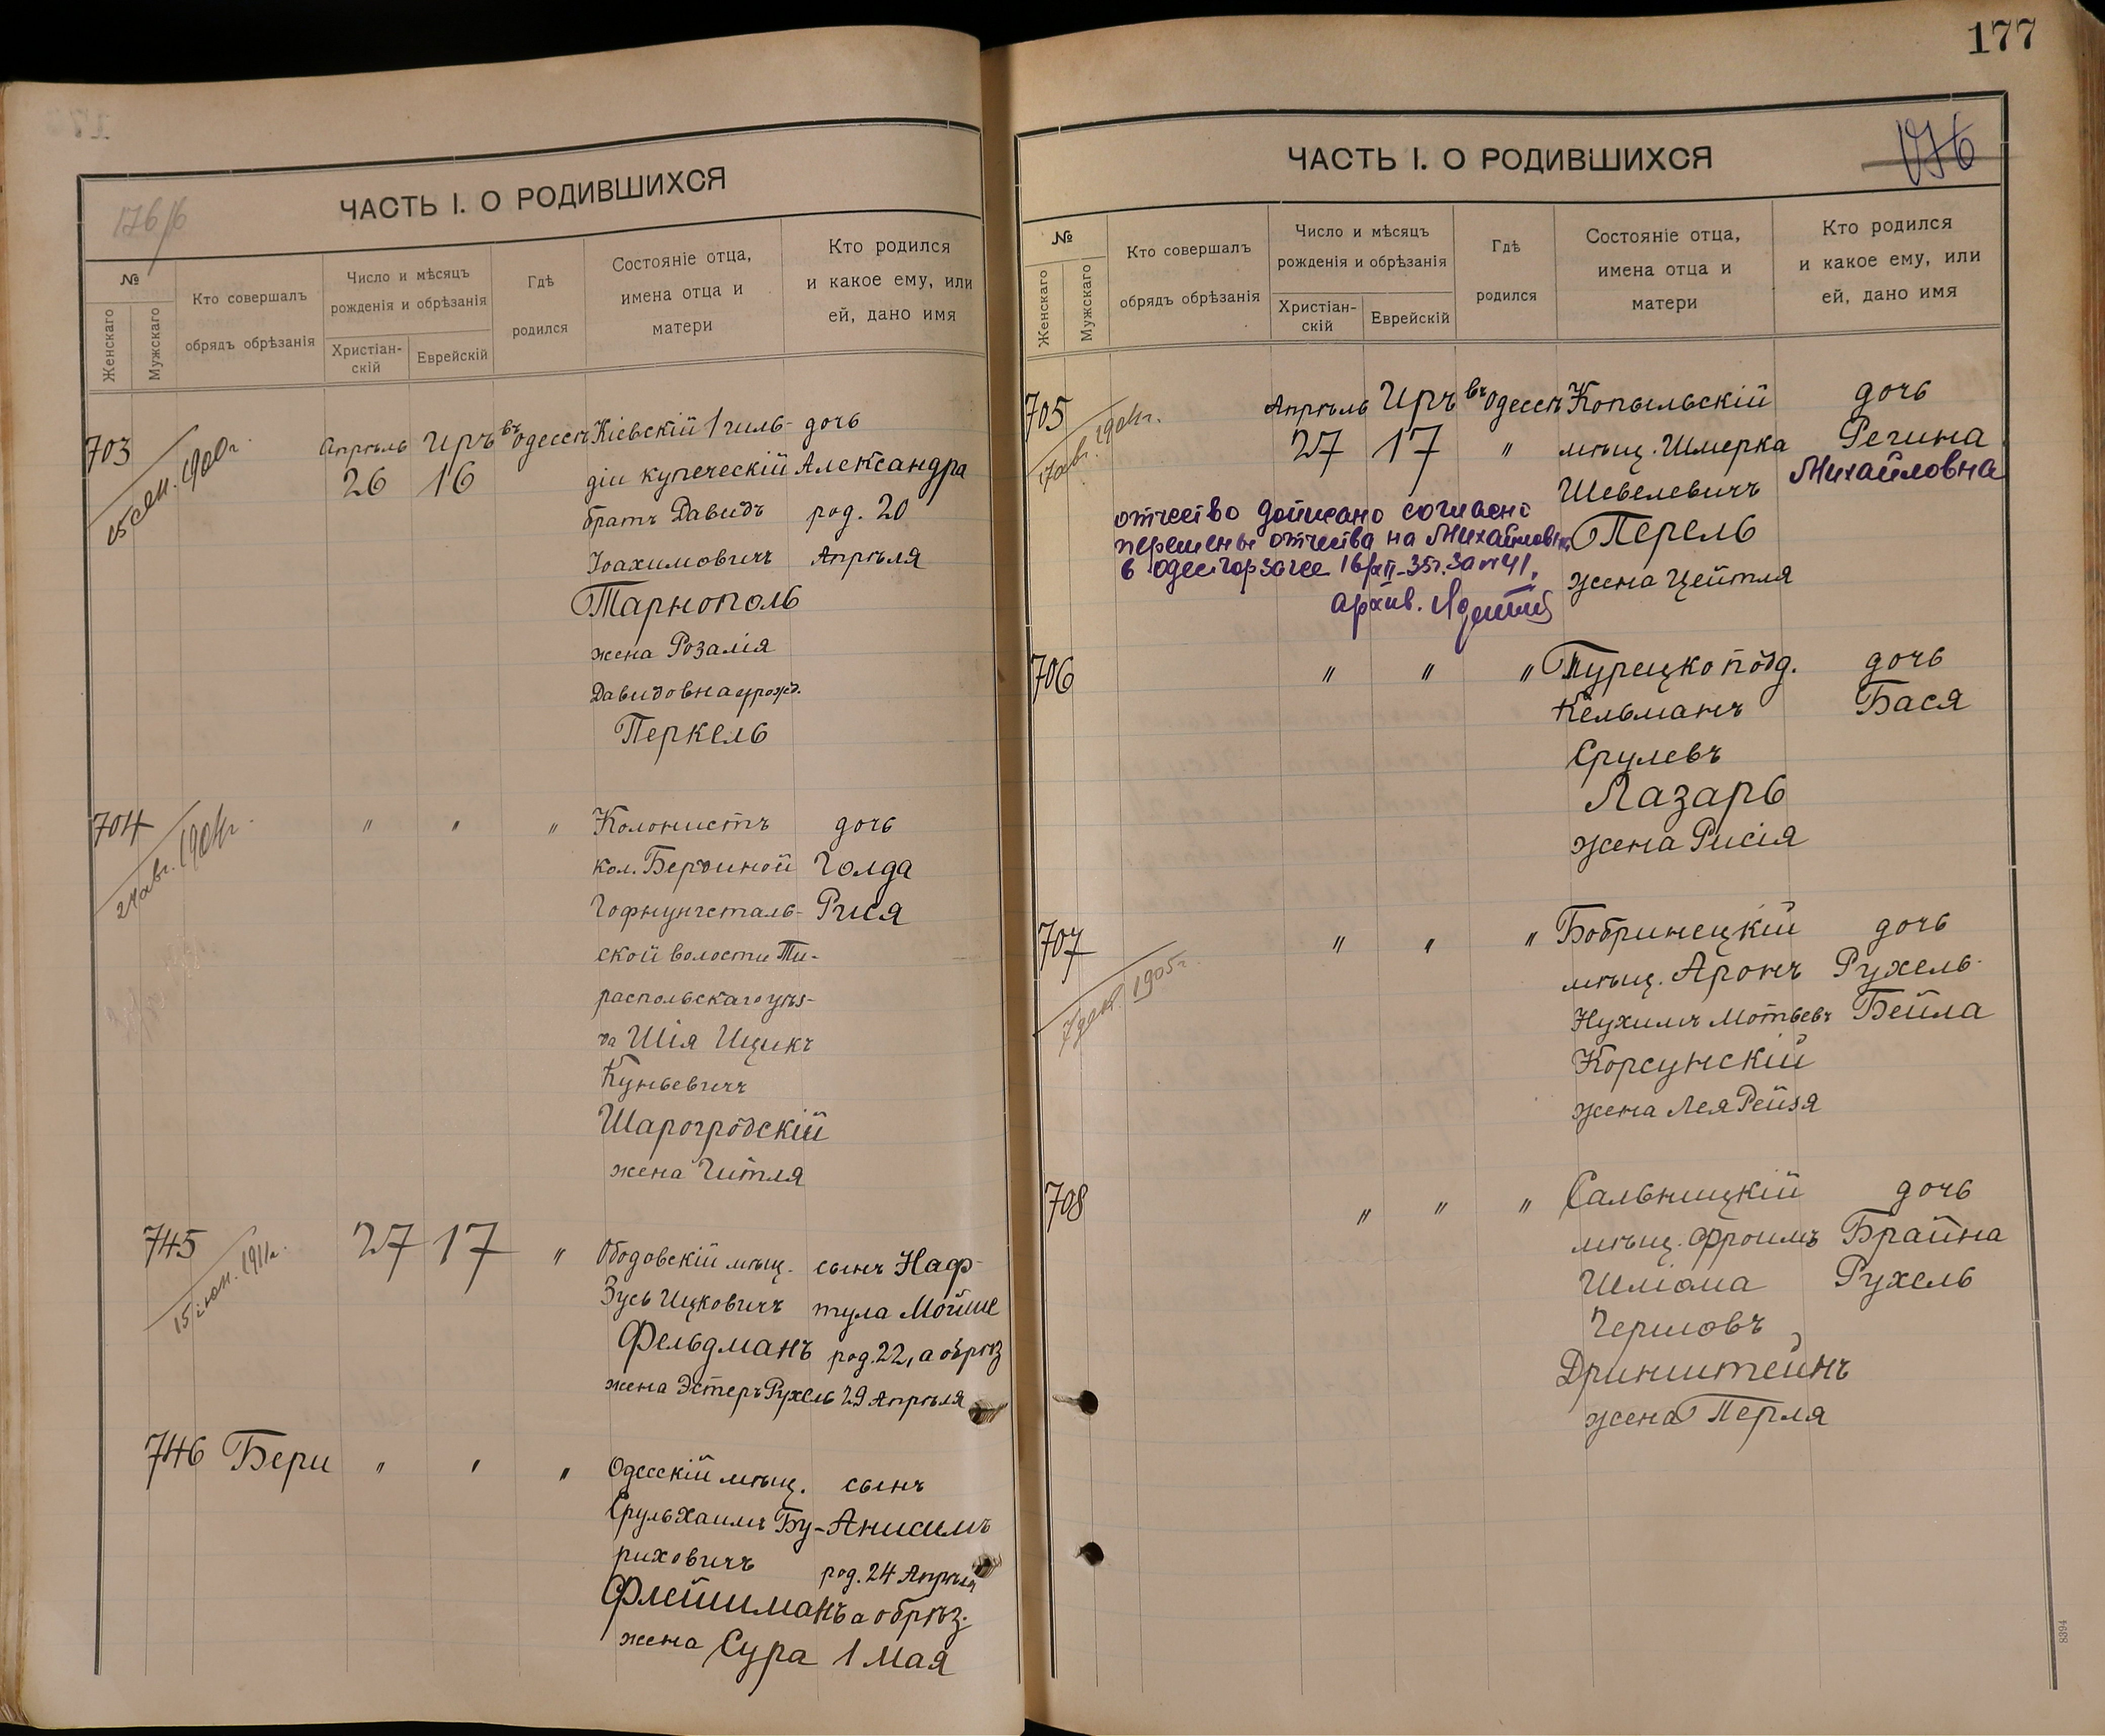 176/б
ЧАСТЬ I. О РОДИВШИХСЯ
№
Женскаго
Мужскаго
Кто совершалъ
обрядъ обрѣзанія
Число и мѣсяцъ
рожденія и обрѣзанія
Христіан-
скій
Еврейскій
Гдѣ
родился
Состояніе отца,
имена отца и
матери
Кто родился
и какое ему, или
ей, дано имя
703
15 сен. 1900г.
Апрѣль
26
Иръ
16
въ Одессѣ
Кіевскій 1 гиль-
діи купеческій
братъ Давидъ
Іоахимовичъ
Тарнополь
жена Розалія
Давидовна урожд.
Перкель
дочь
Александра
род. 20
Апрѣля
704
24 авг. 1904г.
" " "
Колонистъ
кол. Бергиной
Гофнунгсталь-
ской волости Ти-
распольскаго уѣз-
да Шія Ицикъ
Куньевичъ
Шарогродскій
жена Гитля
дочь
Голда
Рися
745
15 іюн. 1911г.
27 17 "
Ободовскій мѣщ.
Зусь Ицковичъ
Фельдманъ
жена Эстеръ Рухель
сынъ Наф-
тула Мойше
род. 22, а обрѣз
29 Апрѣля
746 Бери " " "
Одесскій мѣщ.
Сруль Хаимъ Бу-
риховичъ
Флейшманъ
жена Сура
сынъ
Анисимъ
род. 24 Апрѣля
а обрѣз.
1 Мая
177
176
ЧАСТЬ I. О РОДИВШИХСЯ
№
Женскаго
Мужскаго
Кто совершалъ
обрядъ обрѣзанія
Число и мѣсяцъ
рожденія и обрѣзанія
Христіан-
скій
Еврейскій
Гдѣ
родился
Состояніе отца,
имена отца и
матери
Кто родился
и какое ему, или
ей, дано имя
705
17 авг. 1904г.
Апрѣль
27
Иръ
17
въ Одессѣ
"
Копыльскій
мѣщ. Шмерка
Шевелевичъ
Перель
жена Цейтля
дочь
Регина
Михайловна
отчество дописано согласно
перемены отчества на Михайловна
в Одесгорзагсе 16/XII-35г. за №41.
Архив.
706
" " "
Турецко подд.
Кельманъ
Срулевъ
Лазарь
жена Рисія
дочь
Бася
707
7 дек. 1905г.
" " "
Бобринецкій
мѣщ. Аронъ
Нухимъ Мотьевъ
Корсунскій
жена Лея Рейзя
дочь
Рухель-
Бейла
708
" " "
Сальницкій
мѣщ. Фроимъ
Шліома
Гершовъ
Дринштейнъ
жена Перля
дочь
Брайна
Рухель
8394